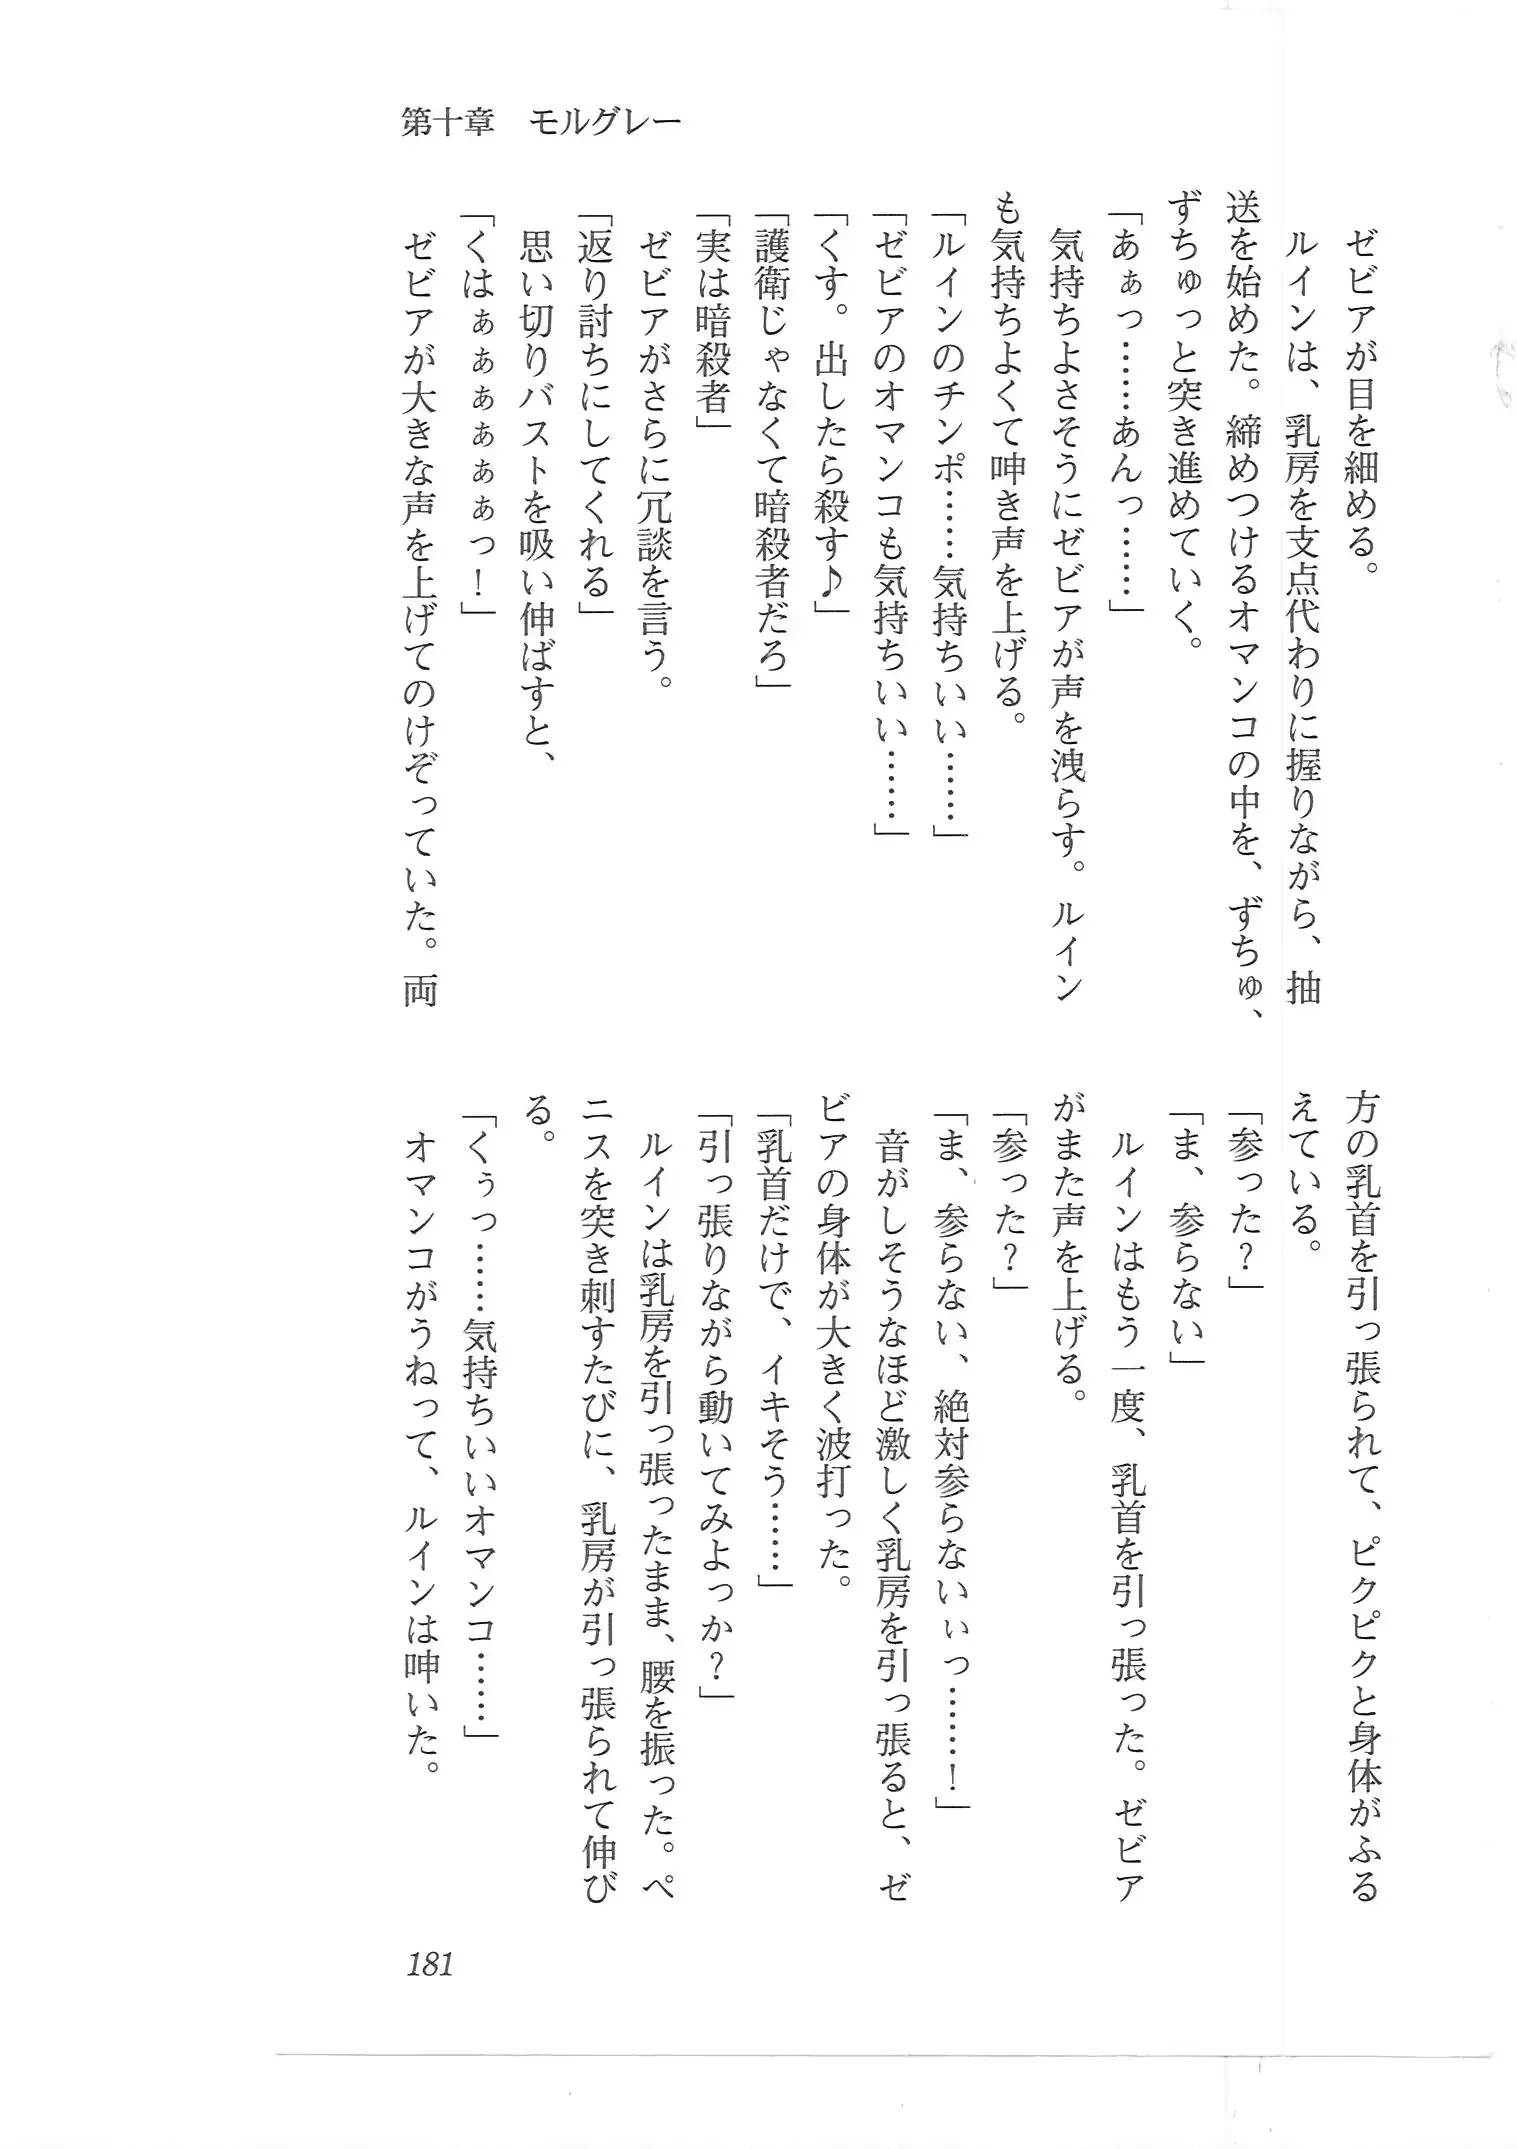 第十章　モルグレー
　ゼビアが目を細める。
　ルインは、乳房を支点代わりに握りながら、抽
送を始めた。締めつけるオマンコの中を、ずちゅ、
ずちゅっと突き進めていく。
「あぁっ……あんっ……」
　気持ちよさそうにゼビアが声を洩らす。ルイン
も気持ちよくて呻き声を上げる。
「ルインのチンポ……気持ちいい……」
「ゼビアのオマンコも気持ちいい……」
「くす。出したら殺す♪」
「護衛じゃなくて暗殺者だろ」
「実は暗殺者」
　ゼビアがさらに冗談を言う。
「返り討ちにしてくれる」
　思い切りバストを吸い伸ばすと、
「くはぁぁぁぁぁぁっ！」
　ゼビアが大きな声を上げてのけぞっていた。両
方の乳首を引っ張られて、ピクピクと身体がふる
えている。
「参った？」
「ま、参らない」
　ルインはもう一度、乳首を引っ張った。ゼビア
がまた声を上げる。
「参った？」
「ま、参らない、絶対参らないぃっ……！」
　音がしそうなほど激しく乳房を引っ張ると、ゼ
ビアの身体が大きく波打った。
「乳首だけで、イキそう……」
「引っ張りながら動いてみよっか？」
　ルインは乳房を引っ張ったまま、腰を振った。ペ
ニスを突き刺すたびに、乳房が引っ張られて伸び
る。
「くぅっ……気持ちいいオマンコ……」
　オマンコがうねって、ルインは呻いた。
181